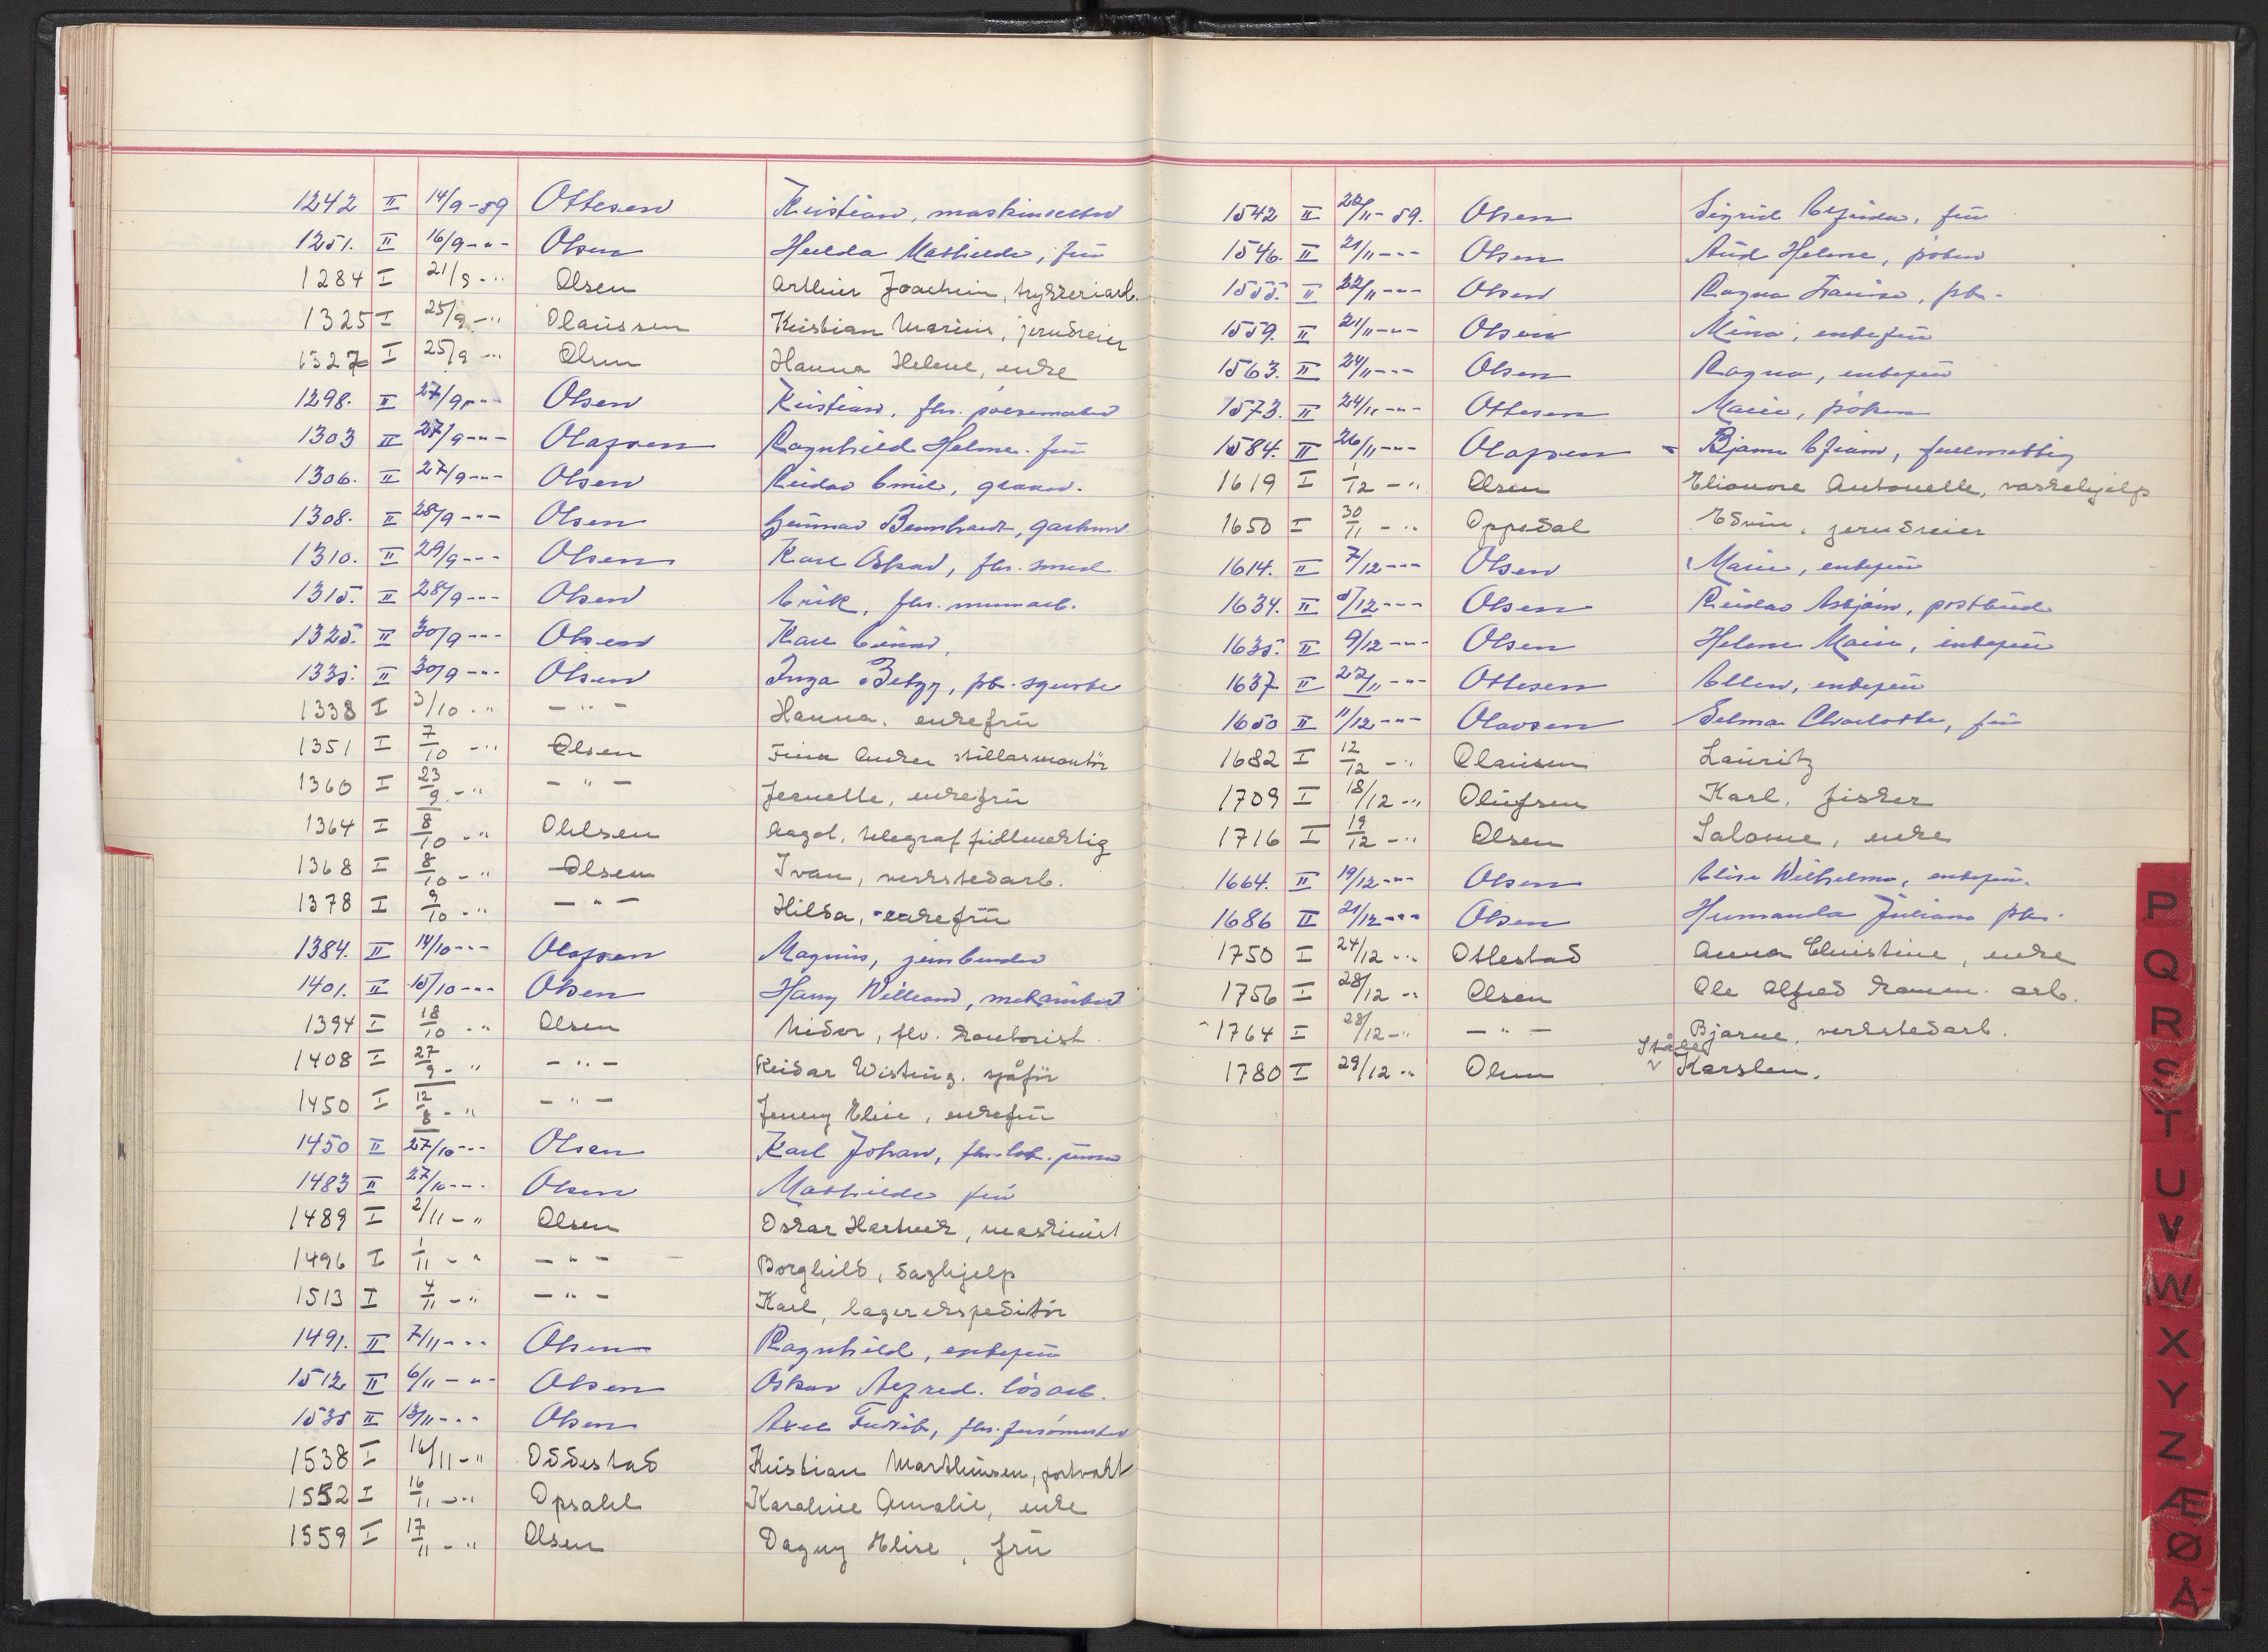 1242 II 14/9-59 Ottesen Kristian, maskinsetter
1251. II 16/9-"- Olsen Hulda Mathilde, frü
1284 I 21/9-" Olsen Arthür Joachim, trykkeriarb.
1325 I 25/9-" Olaüssen Kristian Mariüs, jerndreier
1327 I 25/9-" Olsen Hanna Helene, enke
1298. II 27/9-"- Olsen Kristian, fhv.
1303 II 27/9-"- Olafsen Ragnhild Helene. frü
1306. II 27/9-"- Olsen Reidar Emil,
1308. II 28/9-"- Olsen Günnar Bernhardt,
1310. II 29/9-"- Olsen Karl Oskar, fhv. smed
1315. II 28/9-"- Olsen Erik, fhv. mürarb.
1325. II 30/9-"- Olsen Karl Einar,
1335. II 30/9-"- Olsen Inga Betzy, pb.
1338 I 3/10-" -"- Hanna. enkefrü
1351 I 7/10-" Olsen Finn stillasmontör
1360 I 23/9-" -"- Jeanette, enkefrü
1364 I 8/10-" Ohlsen Aagot, telegraffüllmektig
1368 I 8/10-" Olsen Ivan, verkstedarb.
1378 I 9/10-" -"- Hilda, enkefrü
1384. II 14/10-"- Olafsen Magnüs, jernbinder
1401. II 15/10-"- Olsen Harry William,
1394 I 18/10-" Olsen Vidar, flv. kontorist
1408 I 27/9-" -"- Reidar Wisting. sjåför
1450 I 12/8-" -"- Jenny Elise, enkefrü
1450 II 27/10-"- Olsen Karl Johan, fhv.
1483 II 27/10-"- Olsen Mathilde frü
1489 I 2/11-" Olsen Oskar Hartvik, maskinist
1496 I 1/11-" -"- Borghild, daghjelp
1513 I 4/11-" -"- Karl, lagerekspeditör
1491. II 7/11-"- Olsen Ragnhild, enkefrü
1512. II 6/11-"- Olsen Oskar Alfred. lösarb.
1535 II 13/11-"- Olsen Axel Fredrik, fhv.
1538 I 16/11-" Oddestad Kristian Marthinsen, portvakt
1552 I 16/11-" Opsahl Karoline Amalie, enke
1559 I 17/11-" Olsen Dagny Elise, frü
1542 II 20/11-59. Olsen Sigrid Elfrida, frü
1546. II 21/11-"- Olsen Aüd Helene, pöken
1555. II 22/11-"- Olsen Ragna Lovise, pb.
1559. II 21/11-"- Olsen Mina, enkefrü
1563. II 24/11-"- Olsen Ragna, enkefrü
1573. II 24/11-"- Ottesen Marie, pöken
1584. II 26/11-"- Olafsen Bjarne Efraim, füllmektig
1619 I 1/12-" Olsen Elionore Antonette, vaskehjelp
1650 I 30/11-" Oppedal Edvin, jerndreier
1614. II 7/12-"- Olsen Marie, enkefrü
1634. II 5/12-"- Olsen Reidar Asbjörn, postbüd
1635. II 9/12-"- Olsen Helene Marie, enkefrü
1637 II 27/11-"- Ottesen Ellen, enkefrü
1650 II 11/12-"- Olavsen Selma Charlotte, frü
1682 I 12/12-" Olaüsen Laüritz
1709 I 18/12-" Olüfsen Karl, fisker
1716 I 19/12-" Olsen Salome, enke
1664. II 19/12-"- Olsen Elise Wilhelma, enkefrü.
1686 II 21/12-"- Olsen Humanda Juliane pb.
1750 I 24/12-" Ottestad Anna Christine, enke
1756 I 28/12-" Olsen Ole Alfred komm. arb.
1764 I 28/12-" -"- Bjarne, verkstedarb.
1780 I 29/12-" Olsen Ståle Karsten.
P
Q
R
S
T
U
V
W
X
Y
Z
Æ
Ø
Å